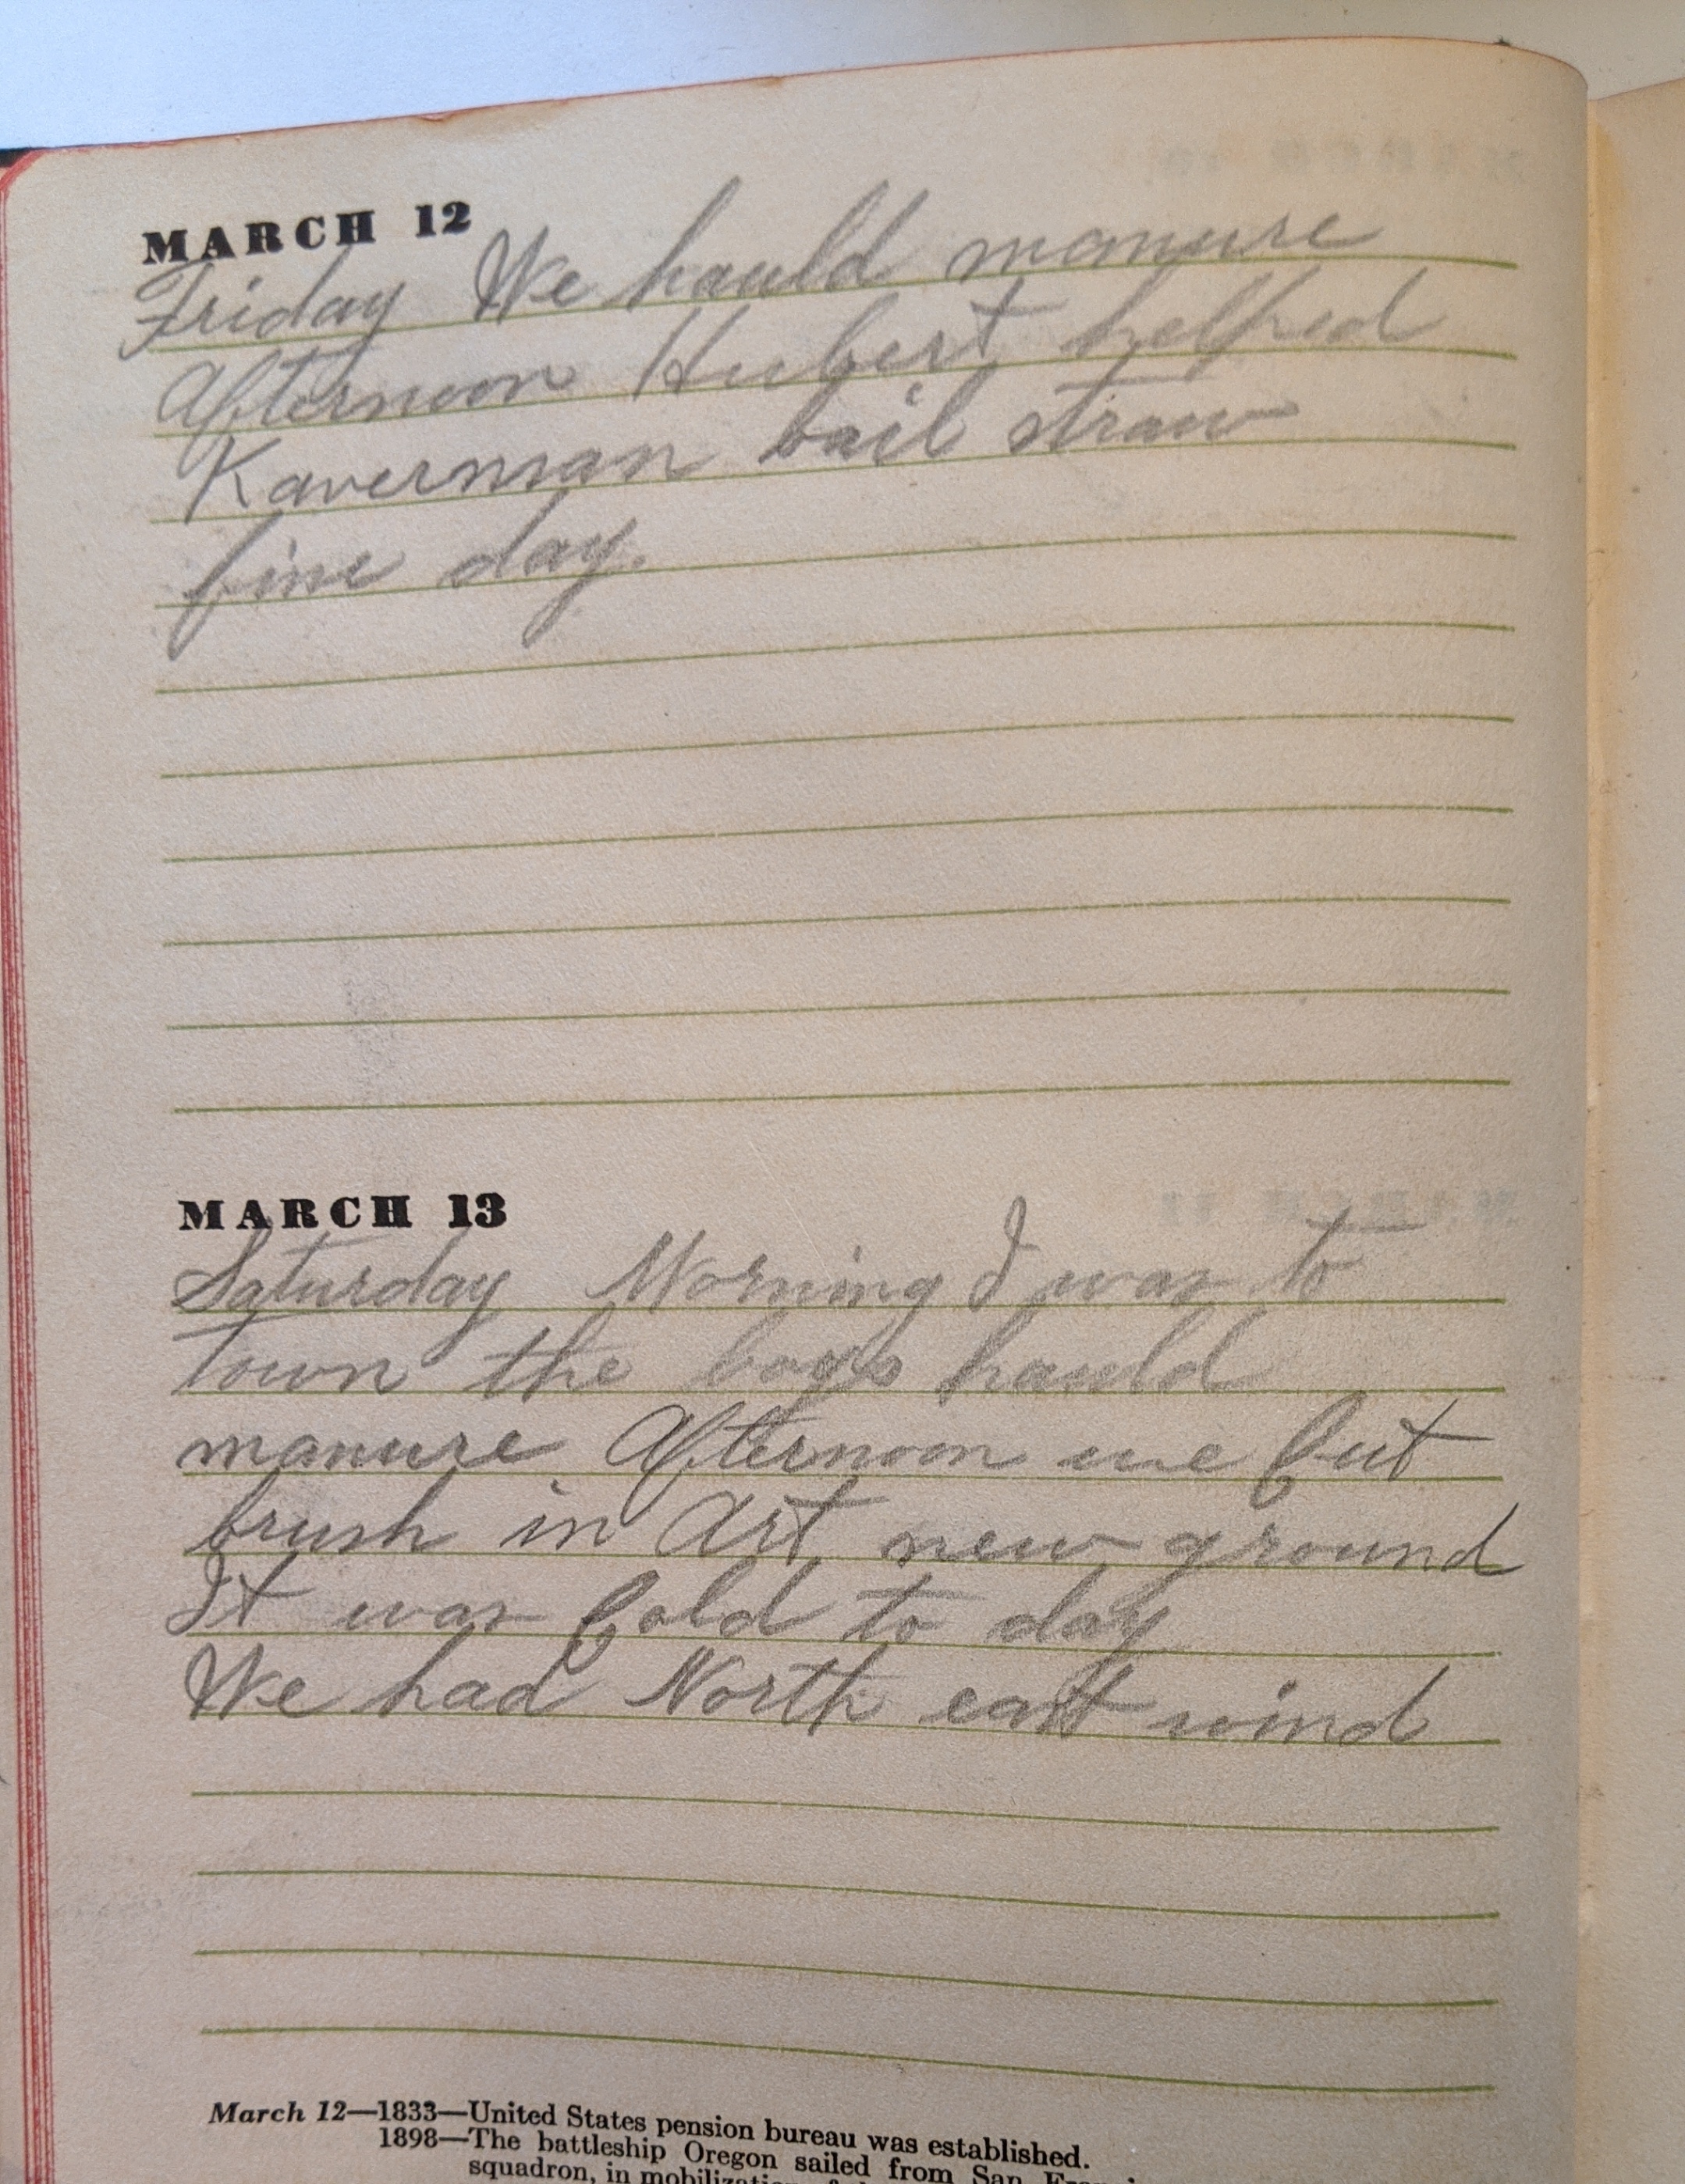 MARCH 12
Friday We hauld manure
Afternoon Hubert helped
Kaverman bail straw
fine day.
MARCH 13
Saturday Morning I was to
town the boys hauld
manure Afternoon we Cut
brush in Art new ground
It was Cold to day
We had North east wind
March 12—1833—United States pension bureau was established.
1898—The battleship Oregon sailed from San
squadron, in